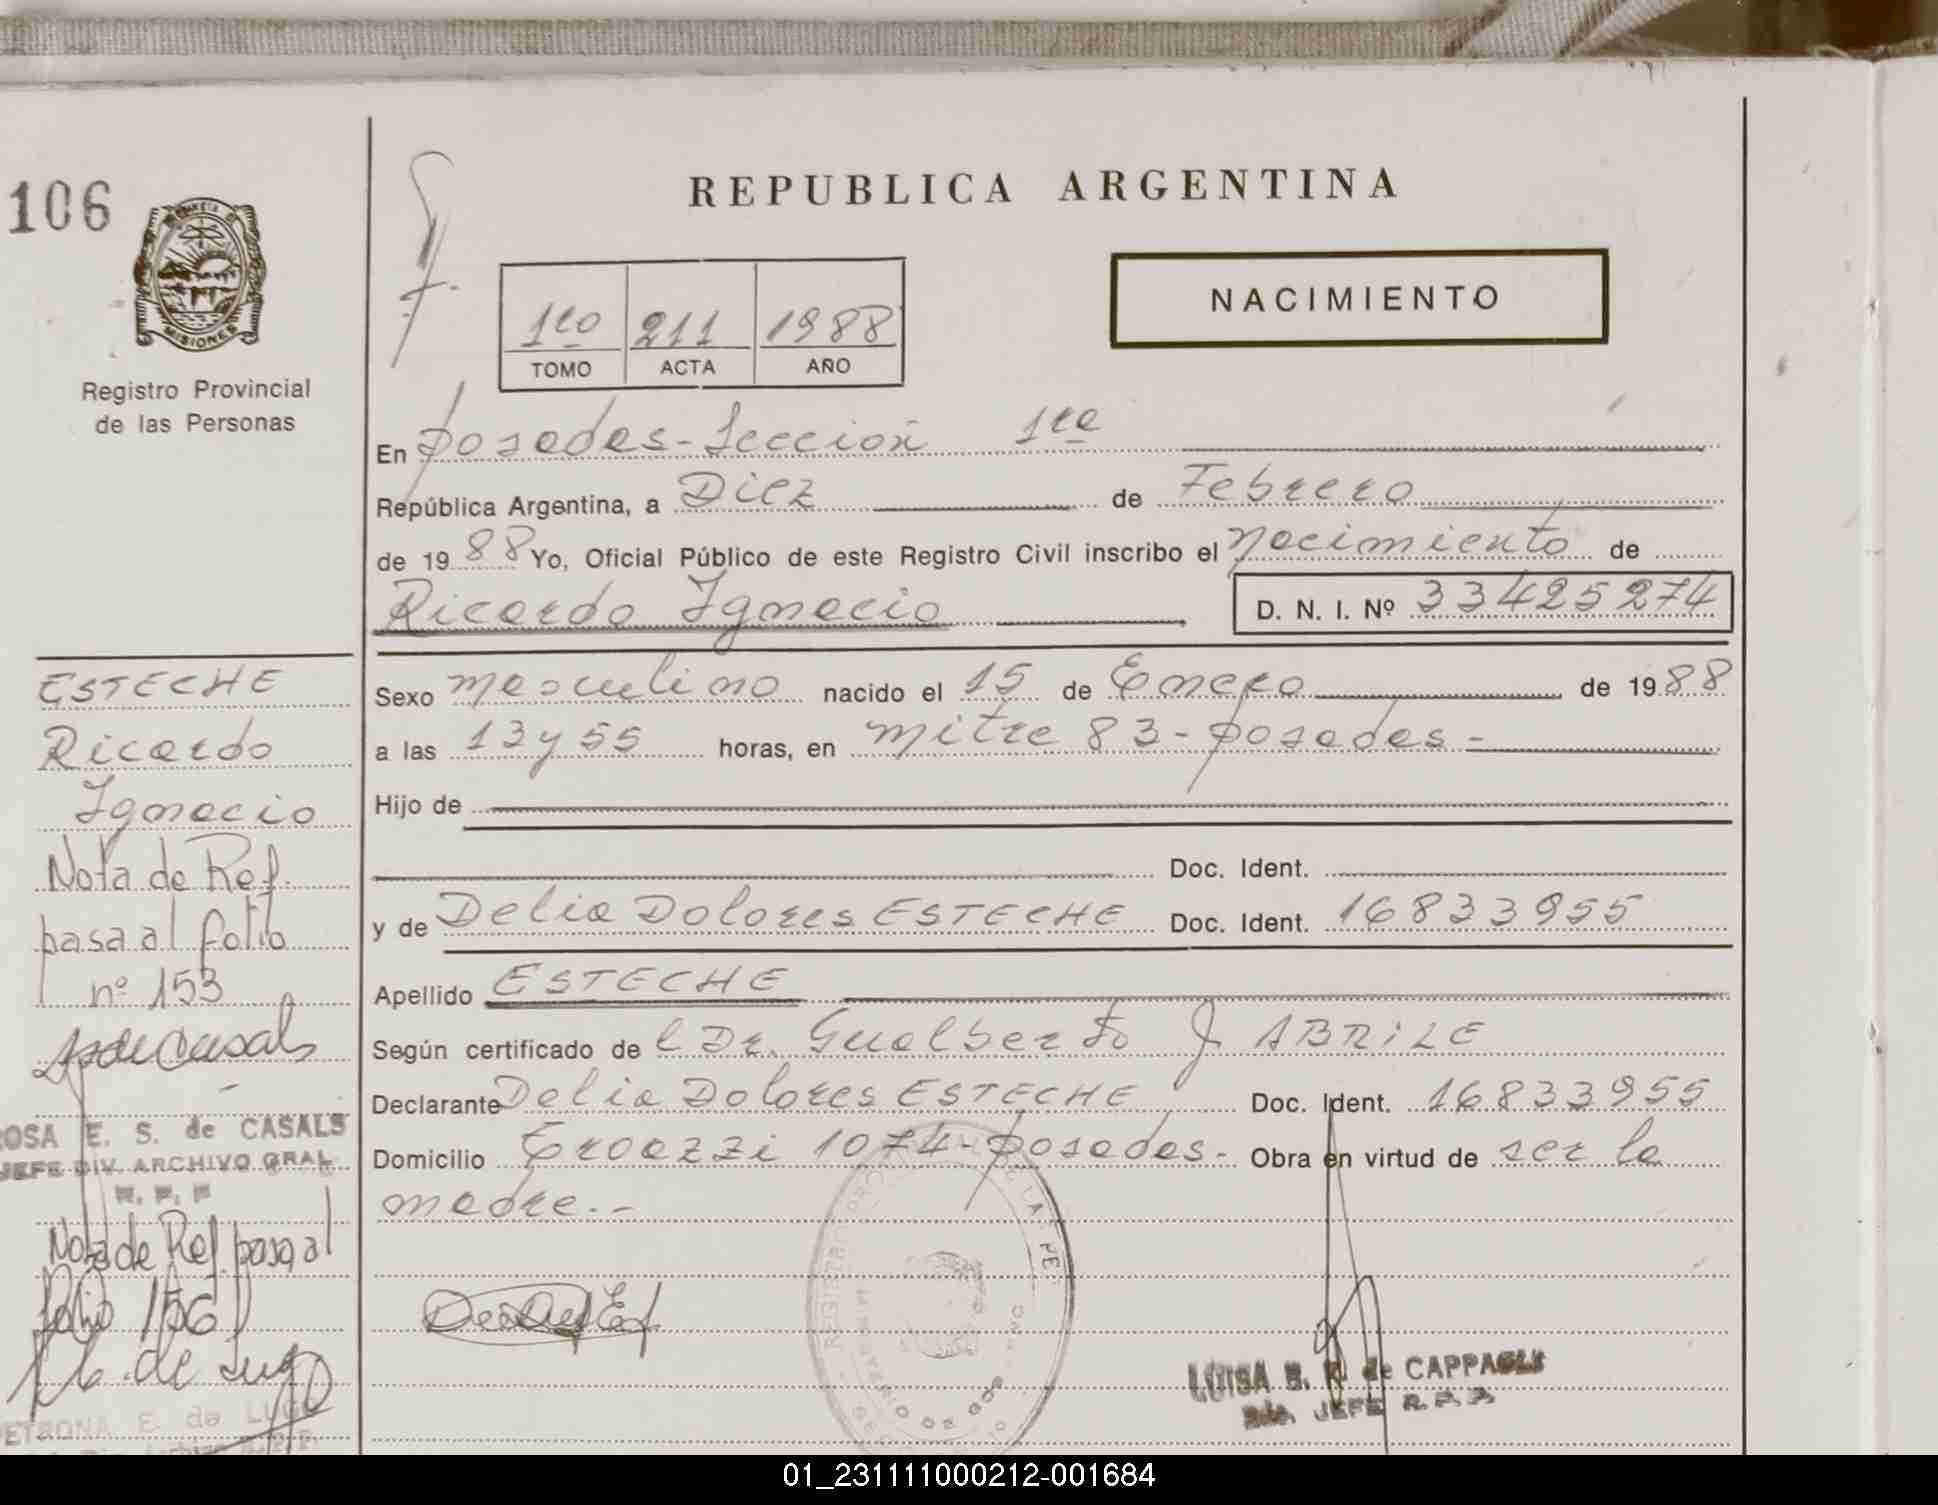 106
MISIONES
Registro Provincial
de las Personas
REPUBLICA ARGENTINA
NACIMIENTO
1ro 211 1988
TOMO ACTA AÑO
En Posadas - Sección 1ra
República Argentina, a Diez de Febrero
de 1988 Yo, Oficial Público de este Registro Civil inscribo el Nacimiento de
Ricardo Ignacio D. N. I. Nº 33425274
Sexo masculino nacido el 15 de Enero de 1988
a las 13 y 55 horas, en mitre 83 - Posadas -
Hijo de
Doc. Ident.
y de Delia Dolores ESTECHE Doc. Ident. 16833955
Apellido ESTECHE
Según certificado de l Dr. Gualberto J ABRILE
Declarante Delia Dolores ESTECHE Doc. Ident. 16833955
Domicilio 1074 - Posadas - Obra en virtud de ser la
madre.-
ESTECHE
Ricardo
Ignacio
Nota de Ref.
pasa al folio
nº 153
de Casals
ROSA E. S. de CASALS
JEFE DIV. ARCHIVO GRAL
Nota de Ref. pasa al
folio 156
de Lugo
PETRONA E. de LUGO
LUISA B. de CAPPAGLI
JEFE R.P.P.
01_231111000212-001684